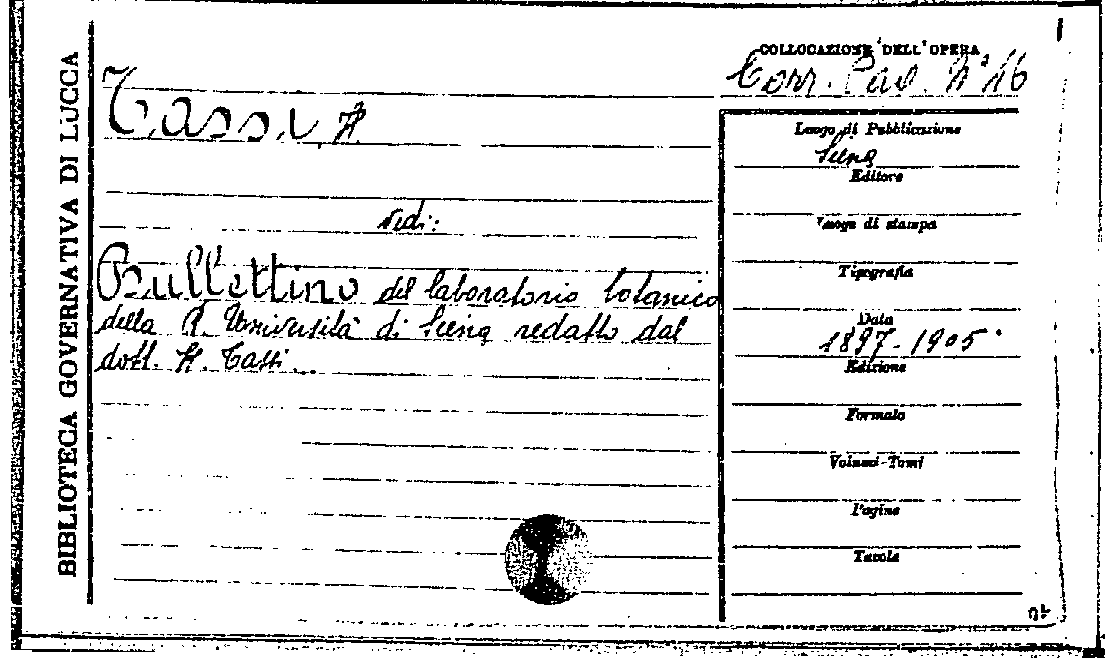 BIBLIOTECA GOVERNATIVA DI LUCCA
COLLOCAZIONE DELL' OPERA
Corr. Pao. N° 16
Tassi, F.
vedi:
Bullettino del laboratorio botanico
della R. Università di Siena redatto dal
dott. F. Tassi...
Luogo di Pubblicazione
Siena
Editore
Luogo di stampa
Tipografia
Data
1897-1905
Edizione
Formato
Volumi-Tomi
Pagine
Tavole